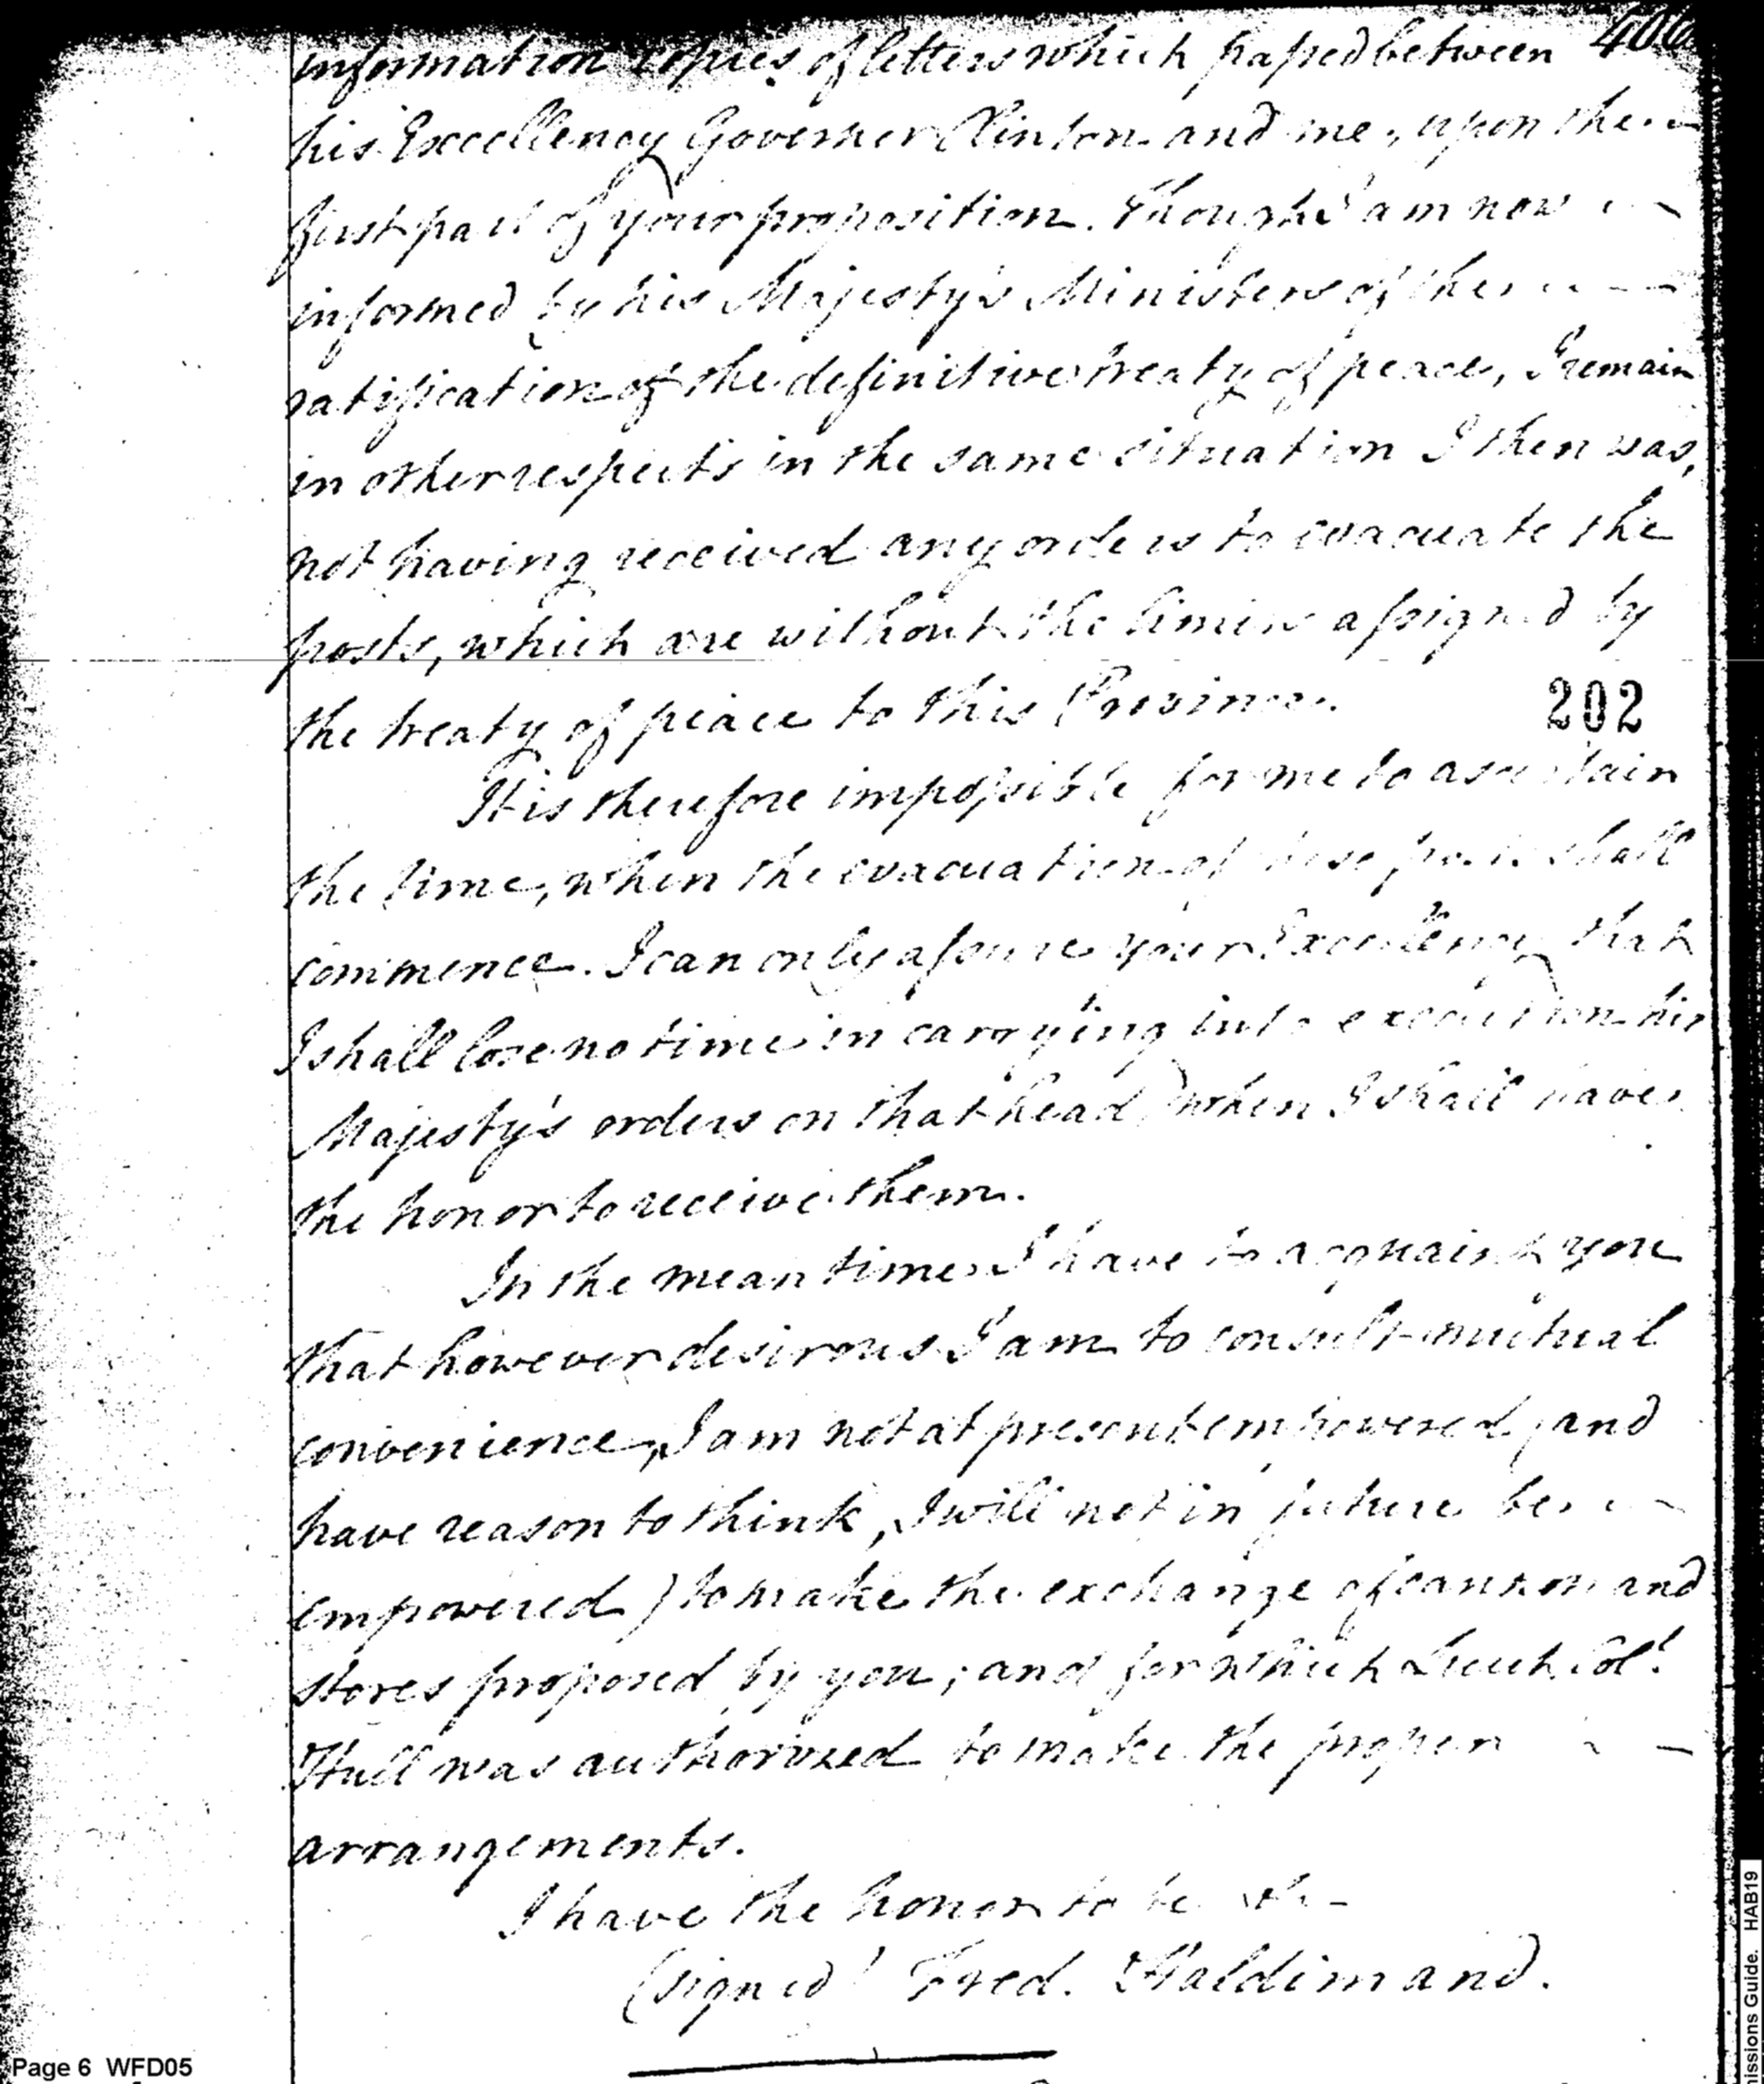 406
information copies of letters which passed between
his Excellency Governor Clinton and me, upon the
first part of your proposition. Though I am now
informed by his Majesty's Ministers of the
ratification of the definitive treaty of peace, I remain
in other respects in the same situation I then was,
not having received any orders to evacuate the
posts, which are without the limits assigned by
the treaty of peace to this Province.
202
It is therefore impossible for me to ascertain
the time, when the evacuation of these posts shall
commence. I can only assure your Excellency that
I shall lose no time in carrying into execution his
Majesty's orders on that head, when I shall have
the honor to receive them.
In the mean time I have to acquaint you
that however desirous I am to consult mutual
convenience, I am not at present empowered, and
have reason to think, I will not in future be
empowered) to make the exchange of cannon and
stores proposed by you; and for which Lieut. Col.
Hull was authorized to make the proper
arrangements.
I have the honor to be &c -
(signed) Fred. Haldimand.
Page 6 WFD05
issions Guide. HAB19